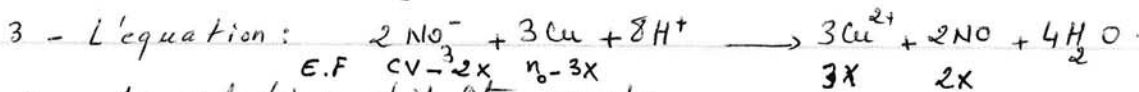 3 - L'equation : 2 NO₃⁻ + 3 Cu + 8H⁺ ⟶ 3Cu²⁺ + 2NO + 4H₂O.
E.F CV-2x n₀-3X 3X 2X